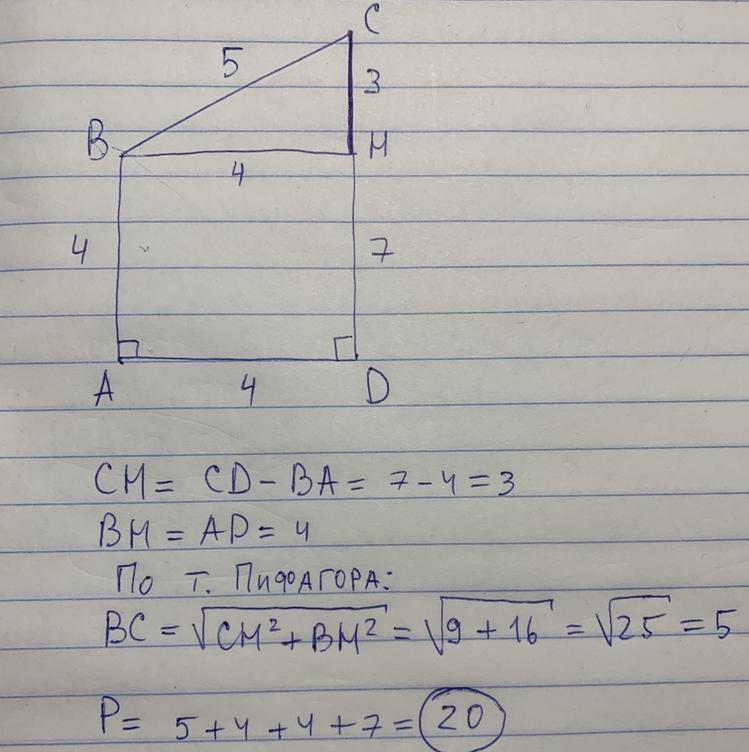 C
5
3
B
H
4
4
7
A
4
D
CH = CD - BA = 7 - 4 = 3
BH = AD = 4
По т. Пифагора:
BC = √CH² + BH² = √9 + 16 = √25 = 5
P = 5 + 4 + 4 + 7 = 20